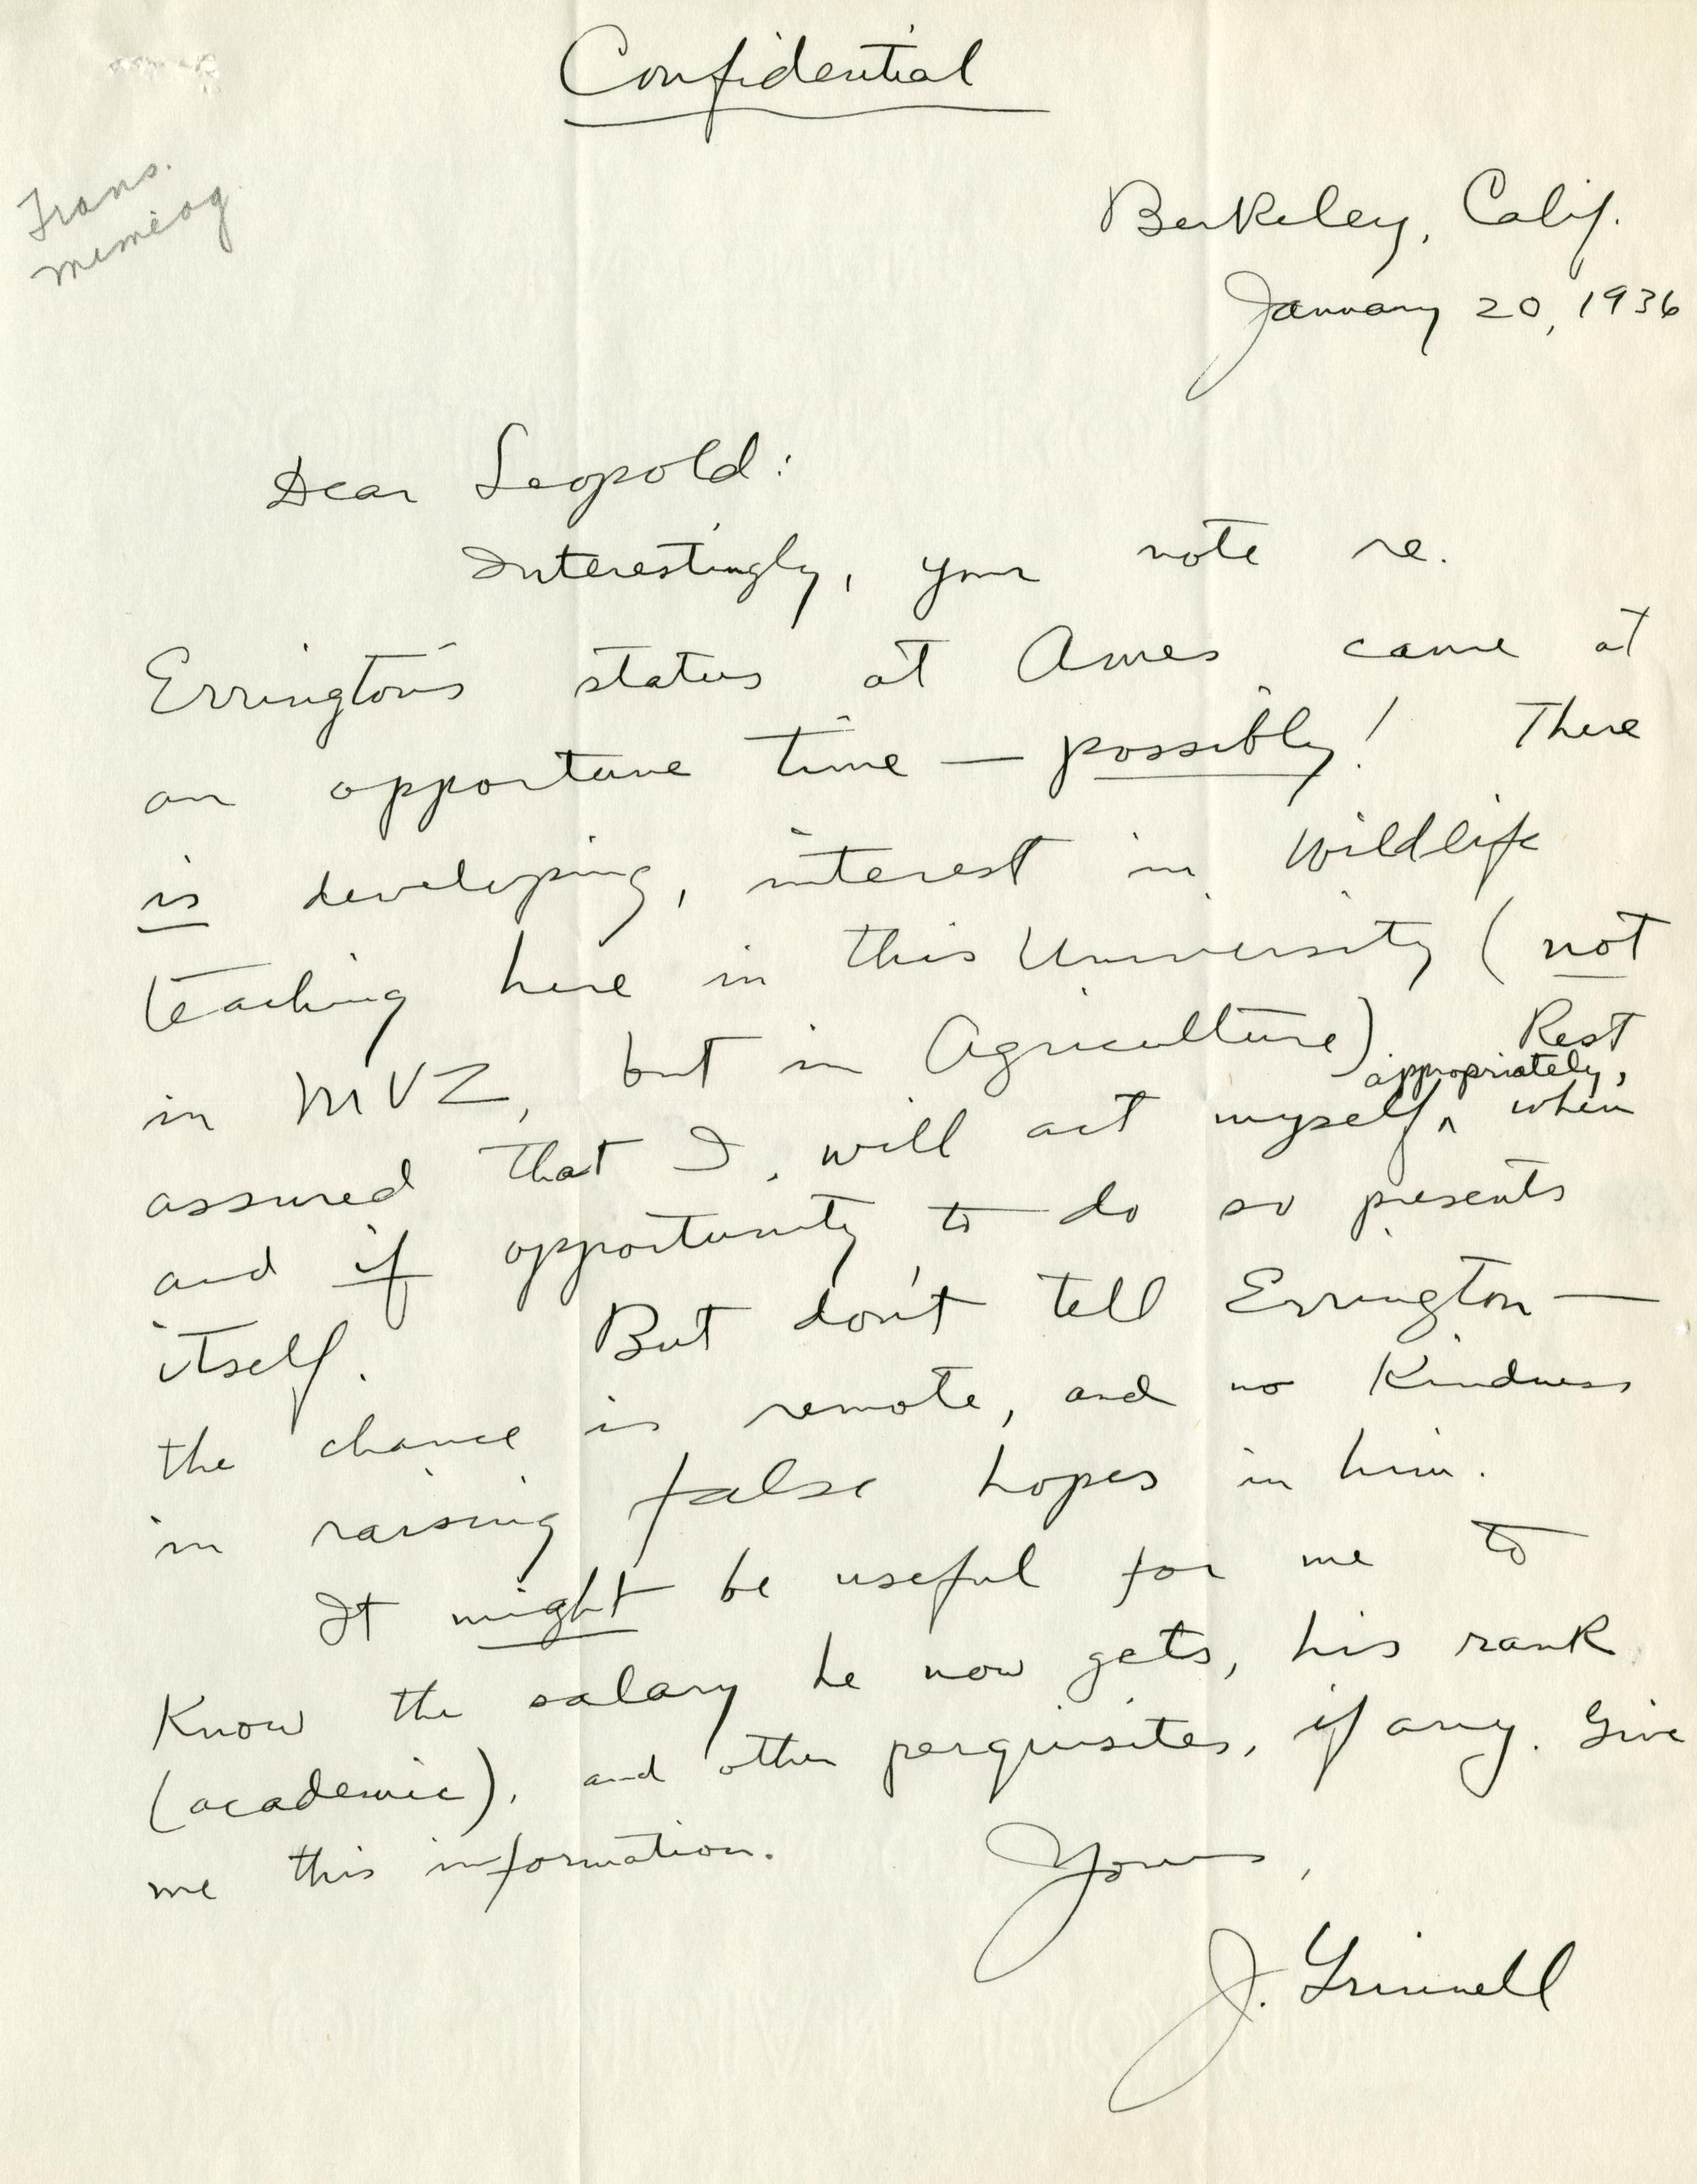 Confidential
Trans.
mimeog
Berkeley, Calif.
January 20, 1936
Dear Leopold:
Interestingly, your note re.
Errington's status at Ames came at
an opportune time — possibly! There
is developing, interest in wildlife
teaching here in this University (not
in MVZ, but in Agriculture). Rest
appropriately,
assured that I will act myself ^ when
and if opportunity to do so presents
itself. But don't tell Errington —
the chance is remote, and no kindness
in raising false hopes in him.
It might be useful for me to
know the salary he now gets, his rank
(academic), and other perquisites, if any. Give
me this information.
Yours,
J. Grinnell